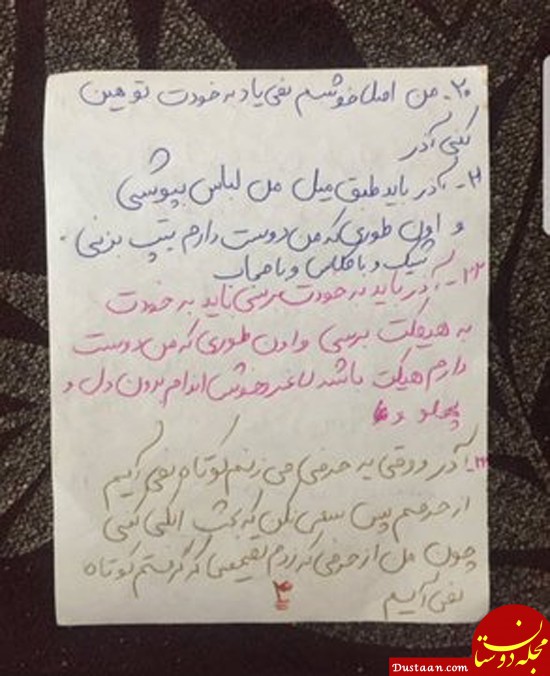 ۲۰- من اصلا خوشم نمی یاد به خودت توهین
کنی آذر
۲۱- آذر باید طبق میل من لباس بپوشی
و اون طوری که من دوست دارم تیپ بزنی
شیک و با کلاس و با حجاب
۲۲- آذر باید به خودت برسی باید به خودت
به هیکلت برسی و اون طوری که من دوست
دارم هیکلت باشد لاغر خوش اندام بدون دل و
پهلو و
۲۳- آذر وقتی یه حرفی می زنم کوتاه نمی آیم
از حرفم پس سعی نکن که بحث الکی کنی
چون من از حرفی که زدم تصمیمی که گرفتم کوتاه
نمی آیم
۴
مجله دوستان
Dustaan.com